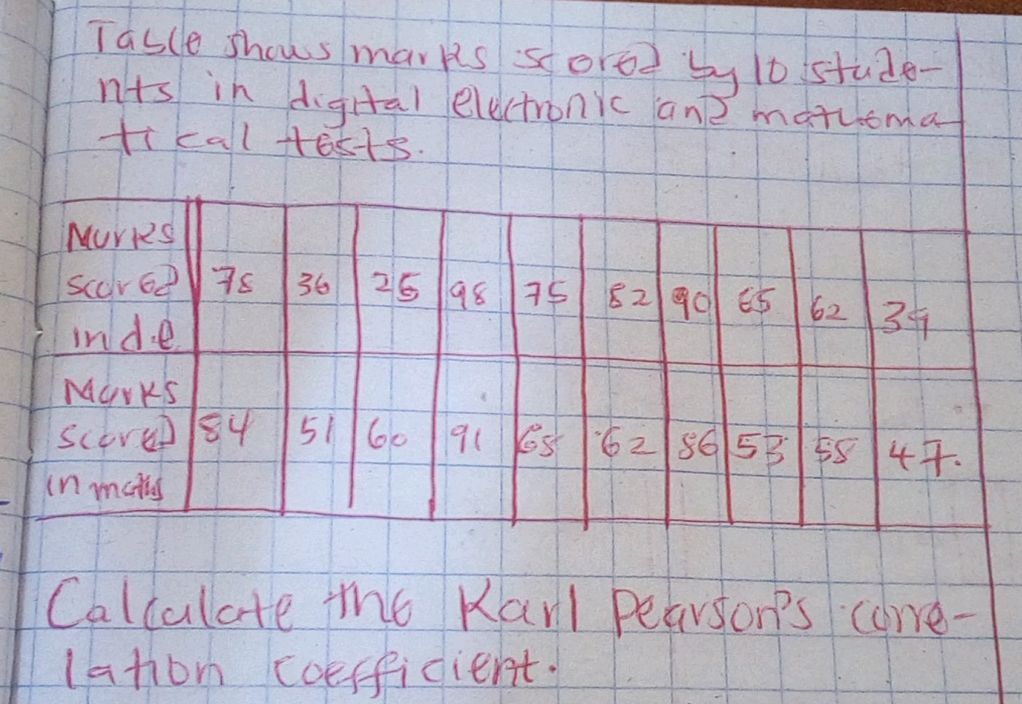 Table shows marks scored by 10 stude-
nts in digital electronic and mathema
tical tests.
Marks scored in d.e 78 36 25 98 75 82 90 65 62 39
Marks scored in maths 84 51 60 91 68 62 86 53 58 47.
Calculate the Karl Pearson's corre-
lation coefficient.